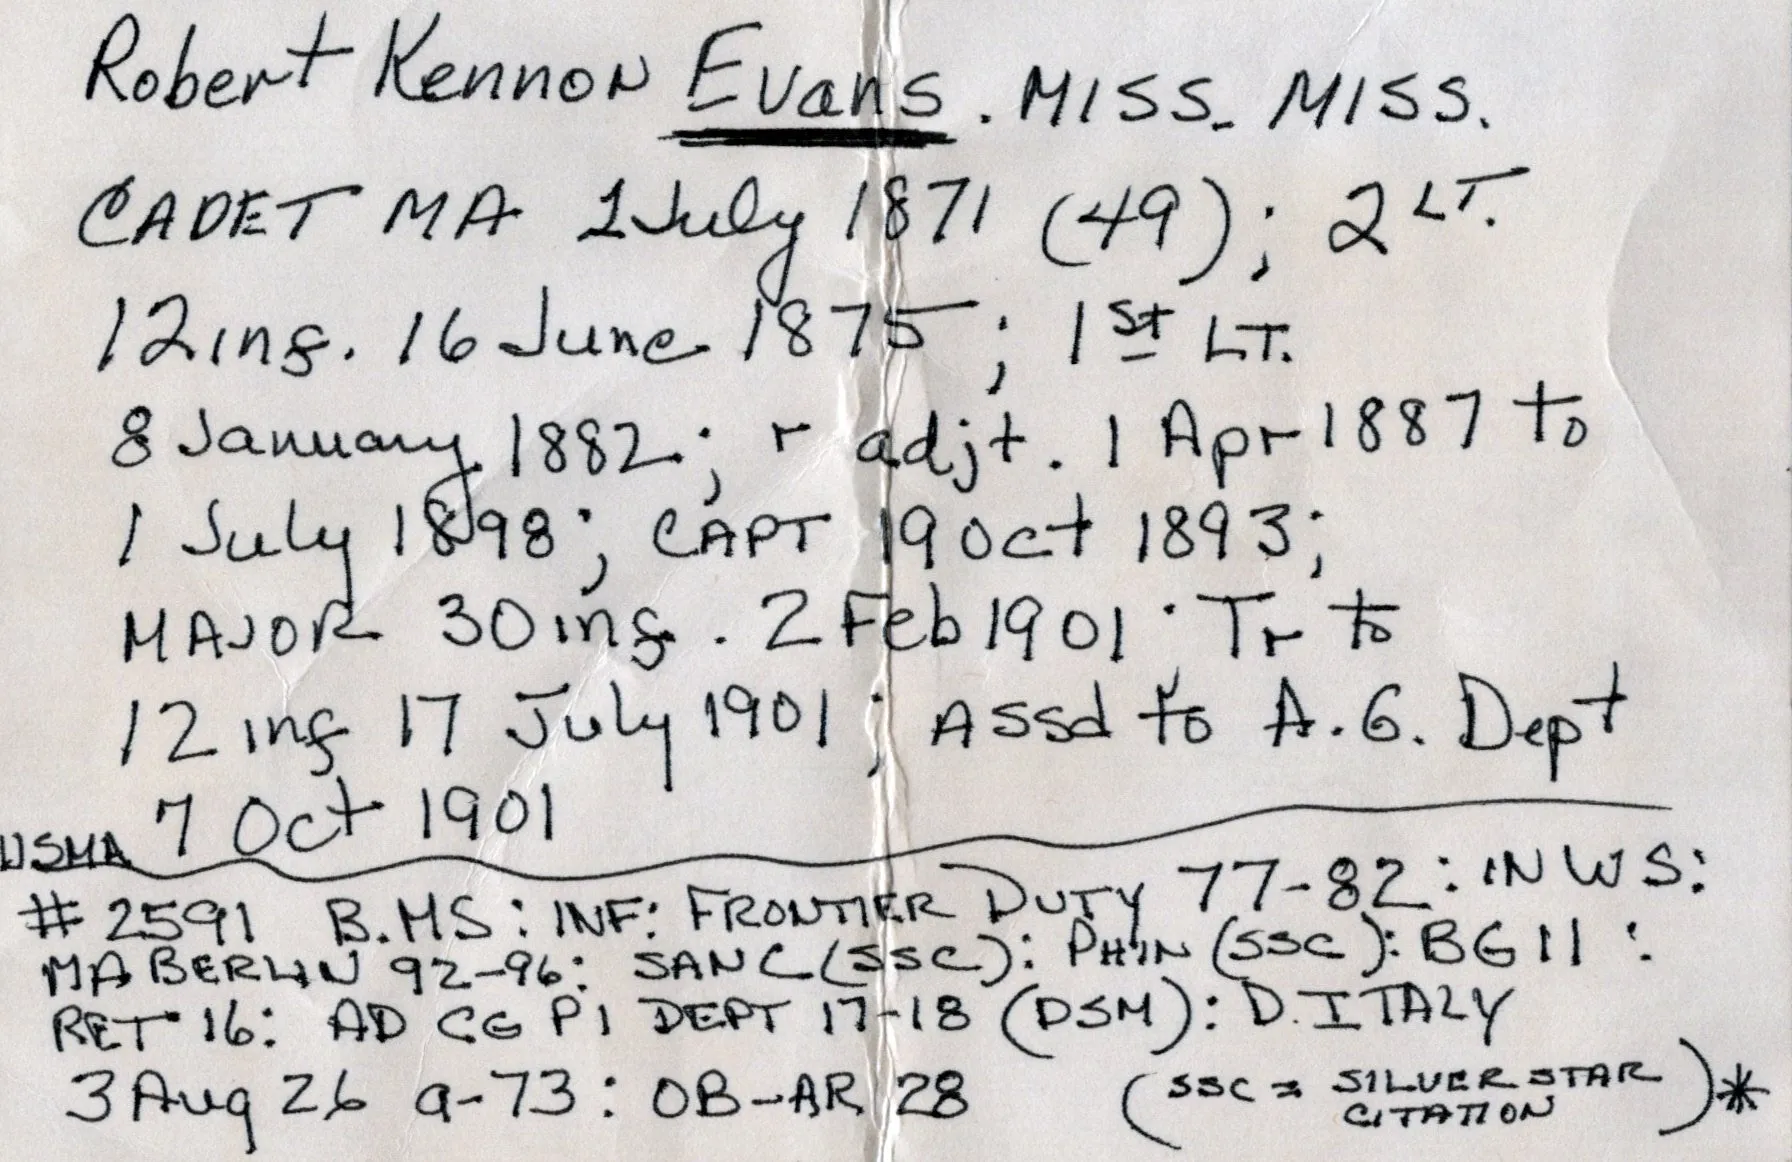 Robert Kennon Evans. MISS. MISS.
CADET MA 1 July 1871 (49); 2 LT.
12 inf. 16 June 1875; 1st LT.
8 January 1882; r adjt. 1 Apr 1887 to
1 July 1898; CAPT 19 Oct 1893;
MAJOR 30 inf. 2 Feb 1901; Tr to
12 inf 17 July 1901; Assd to A.G. Dept
7 Oct 1901
USMA
#2591 B.MS: INF: FRONTIER DUTY 77-82: INWS:
MA BERLIN 92-96: SANC (SSC): PHIN (SSC): BG 11:
RET 16: AD CG PI DEPT 17-18 (DSM): D. ITALY
3 Aug 26 a-73: OB-AR 28 (SSC = SILVER STAR CITATION)*